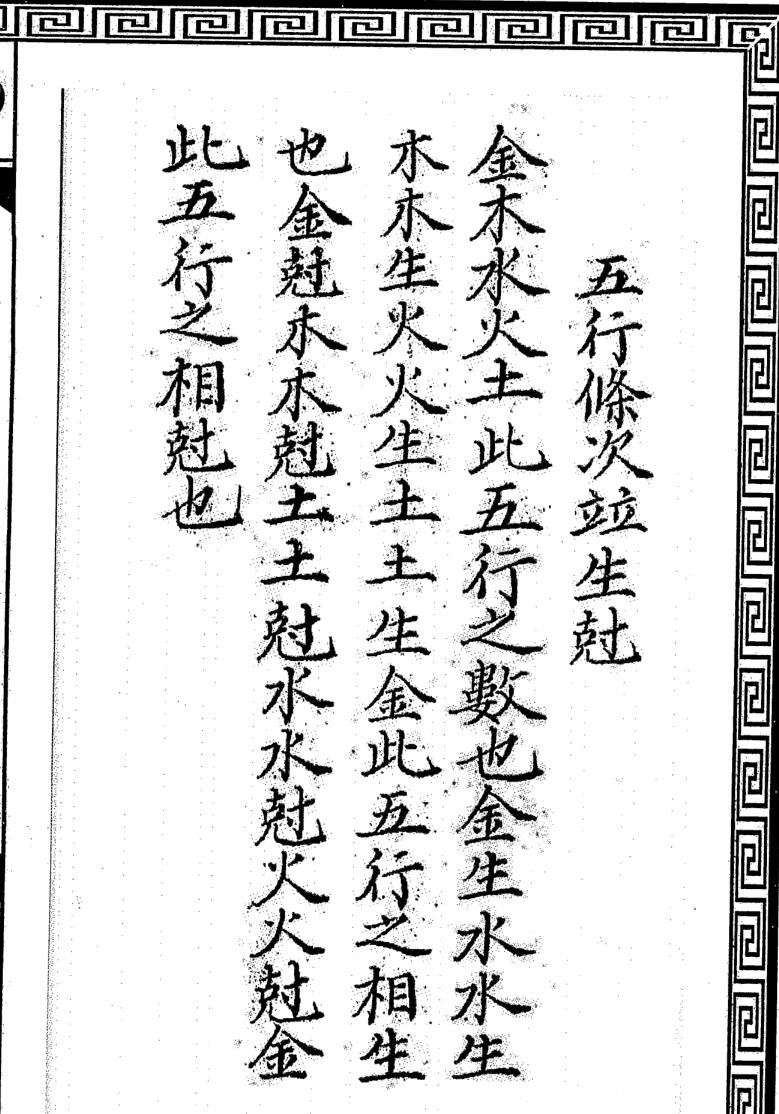 五行條次竝生尅
金木水火土此五行之數也金生水水生
木木生火火生土土生金此五行之相生
也金尅木木尅土土尅水水尅火火尅金
此五行之相尅也